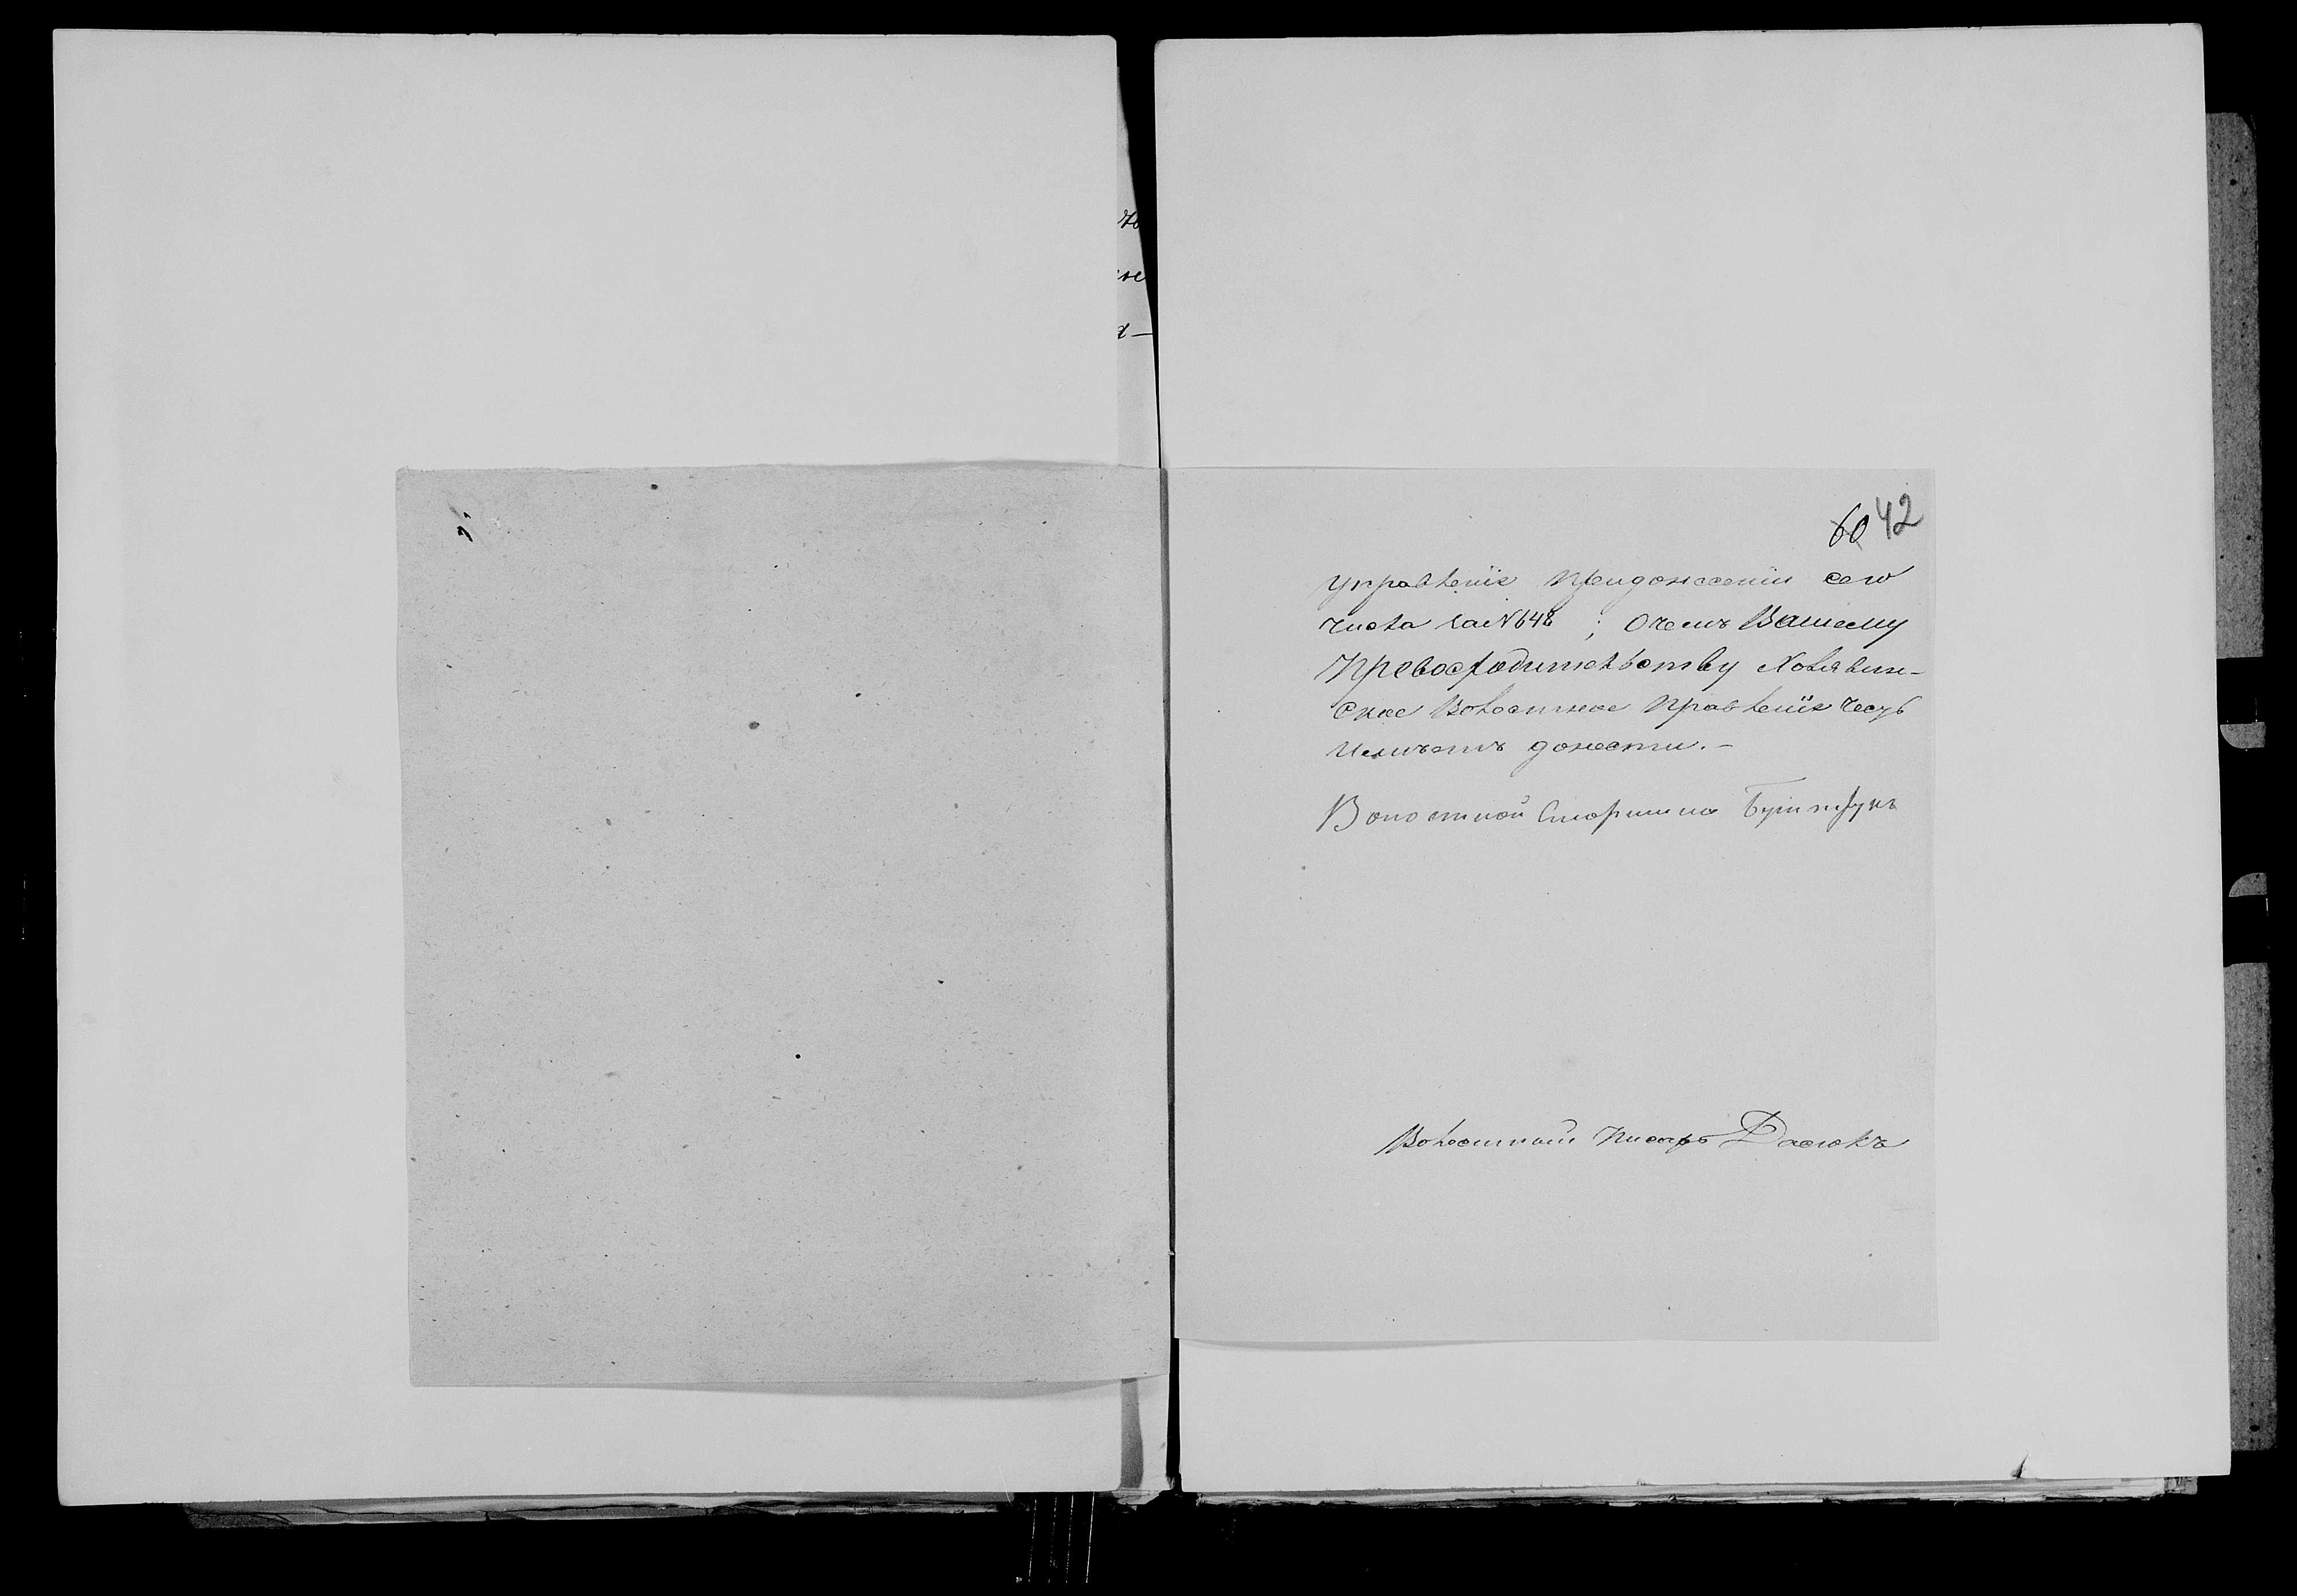 60 42
Управленiе предложенiи сего
числа за №648; о чемъ Вашему
Превосходительству
ское Волостное Правленiе честь
имѣетъ донести.-
Волостной Старшина
Волостный Писарь Дасюкъ